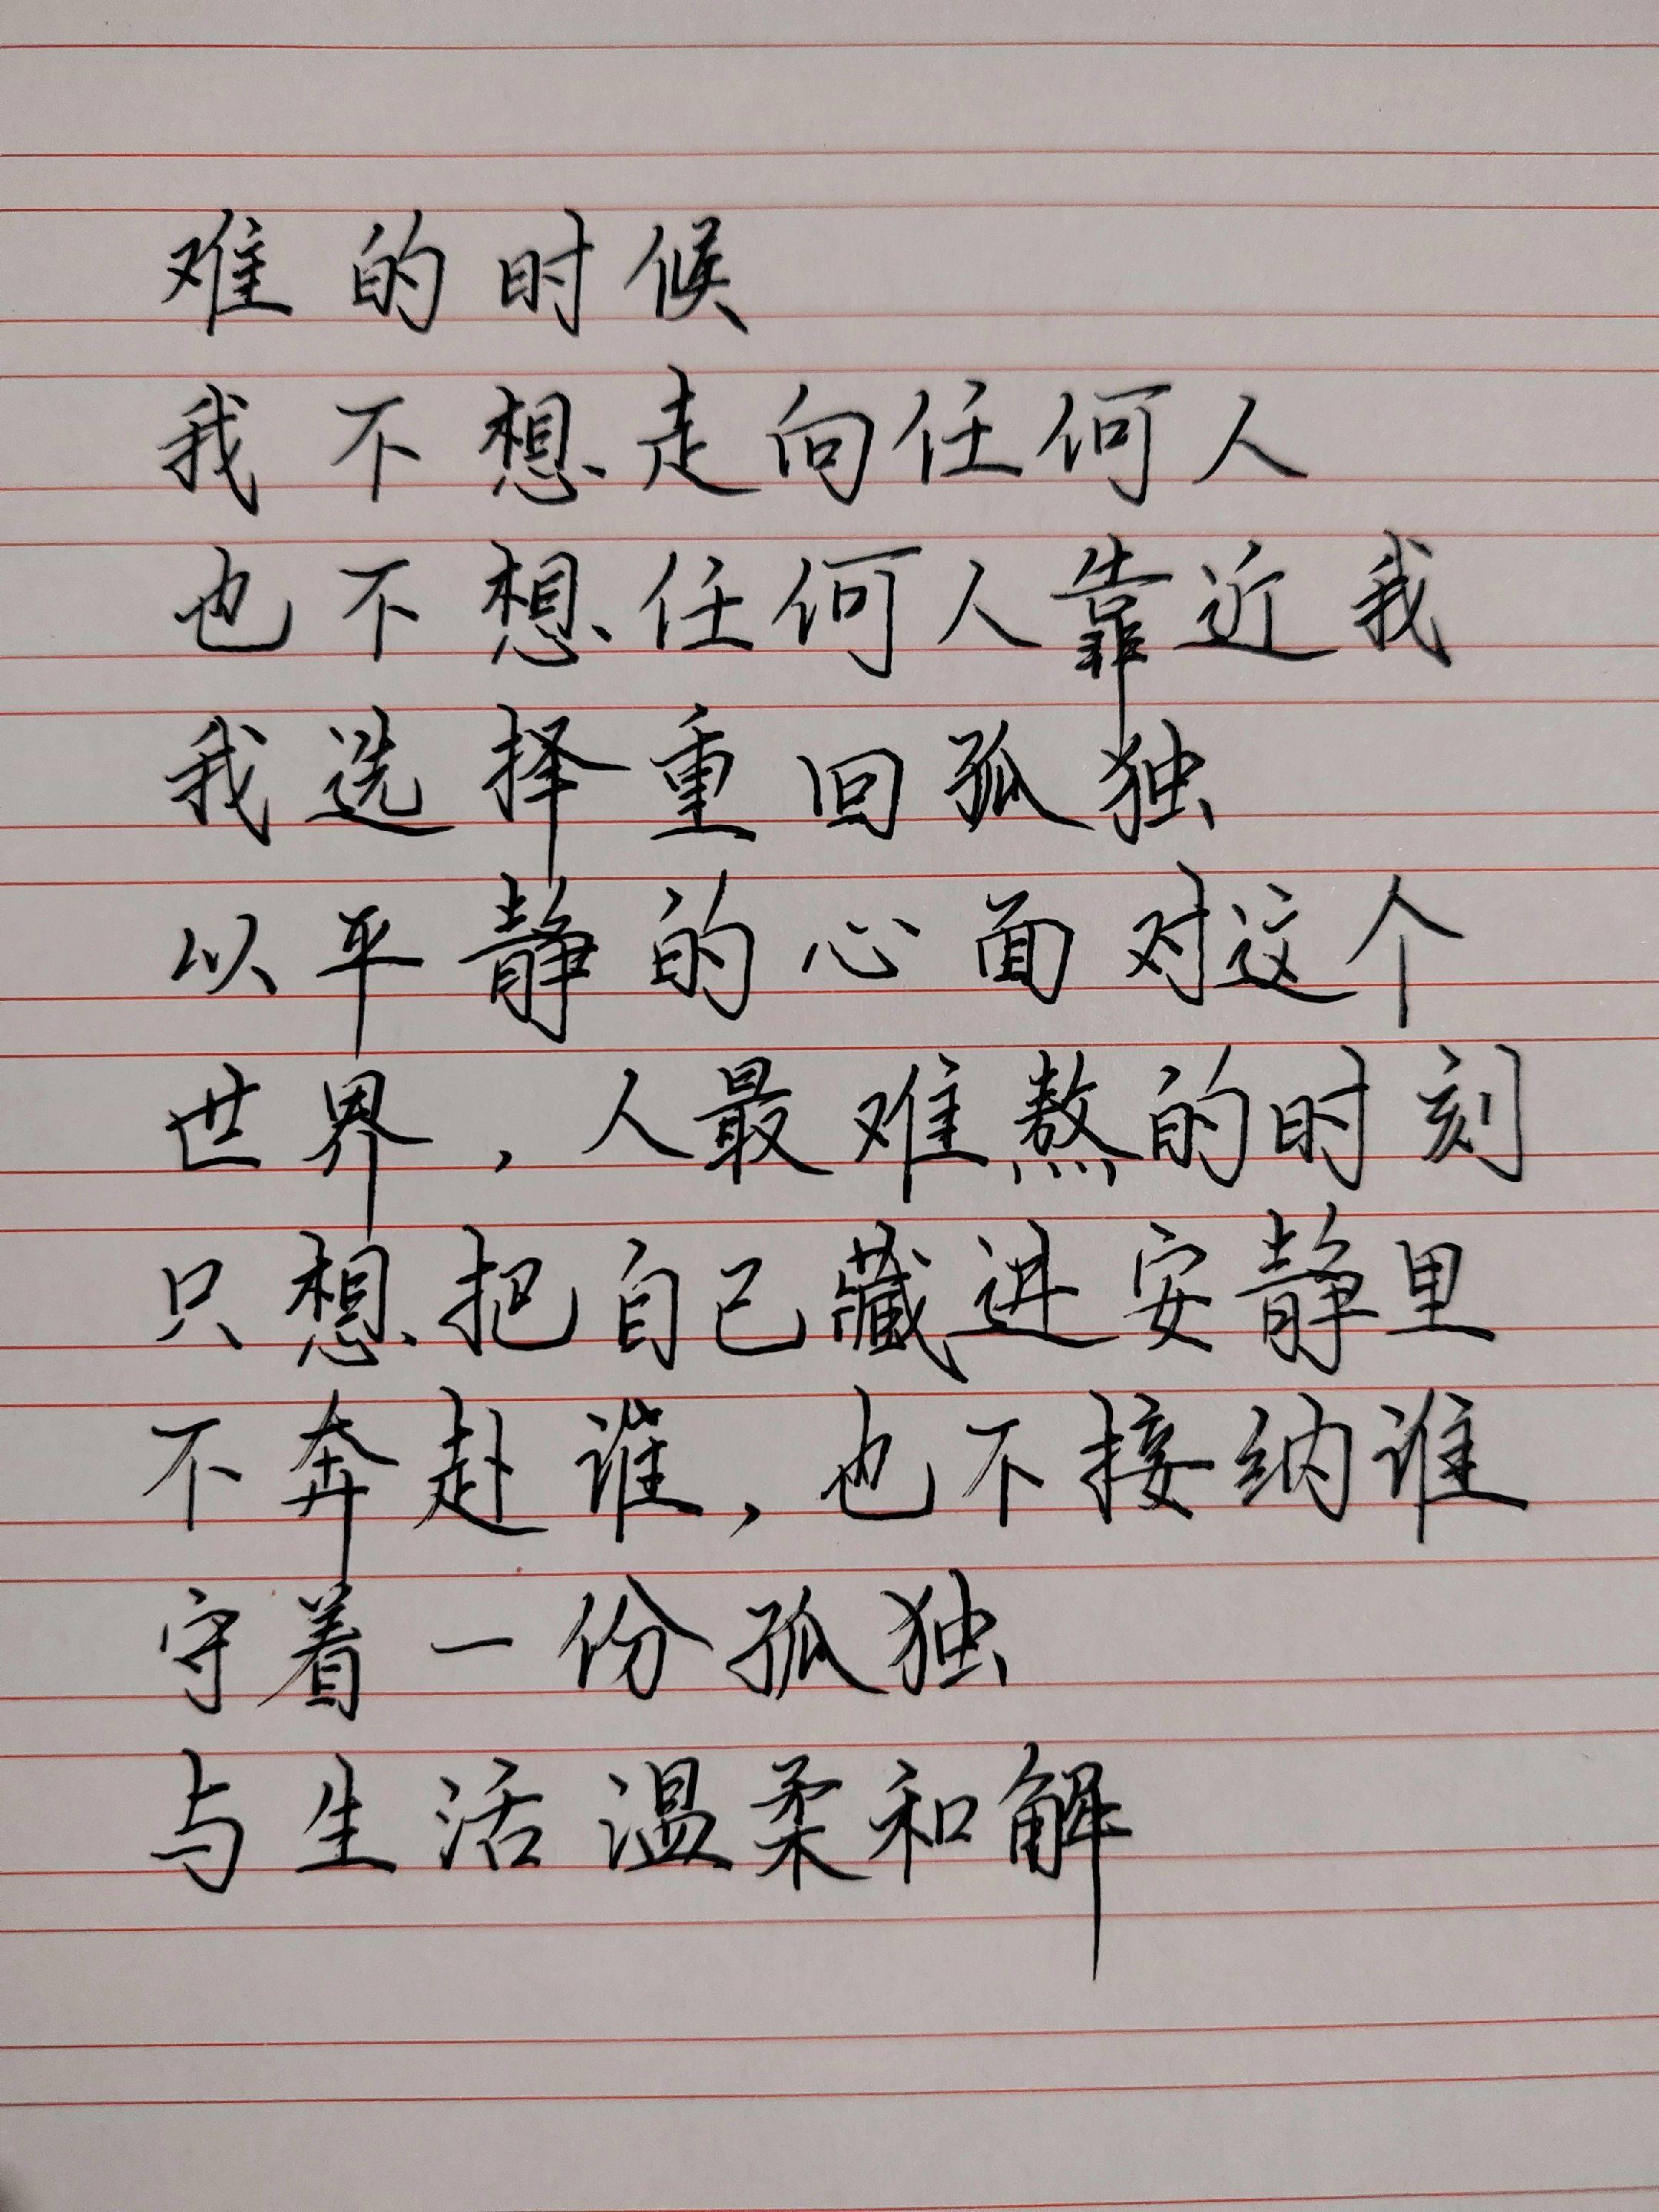 难的时候
我不想走向任何人
也不想任何人靠近我
我选择重回孤独
以平静的心面对这个
世界，人最难熬的时刻
只想把自己藏进安静里
不奔赴谁，也不接纳谁
守着一份孤独
与生活温柔和解